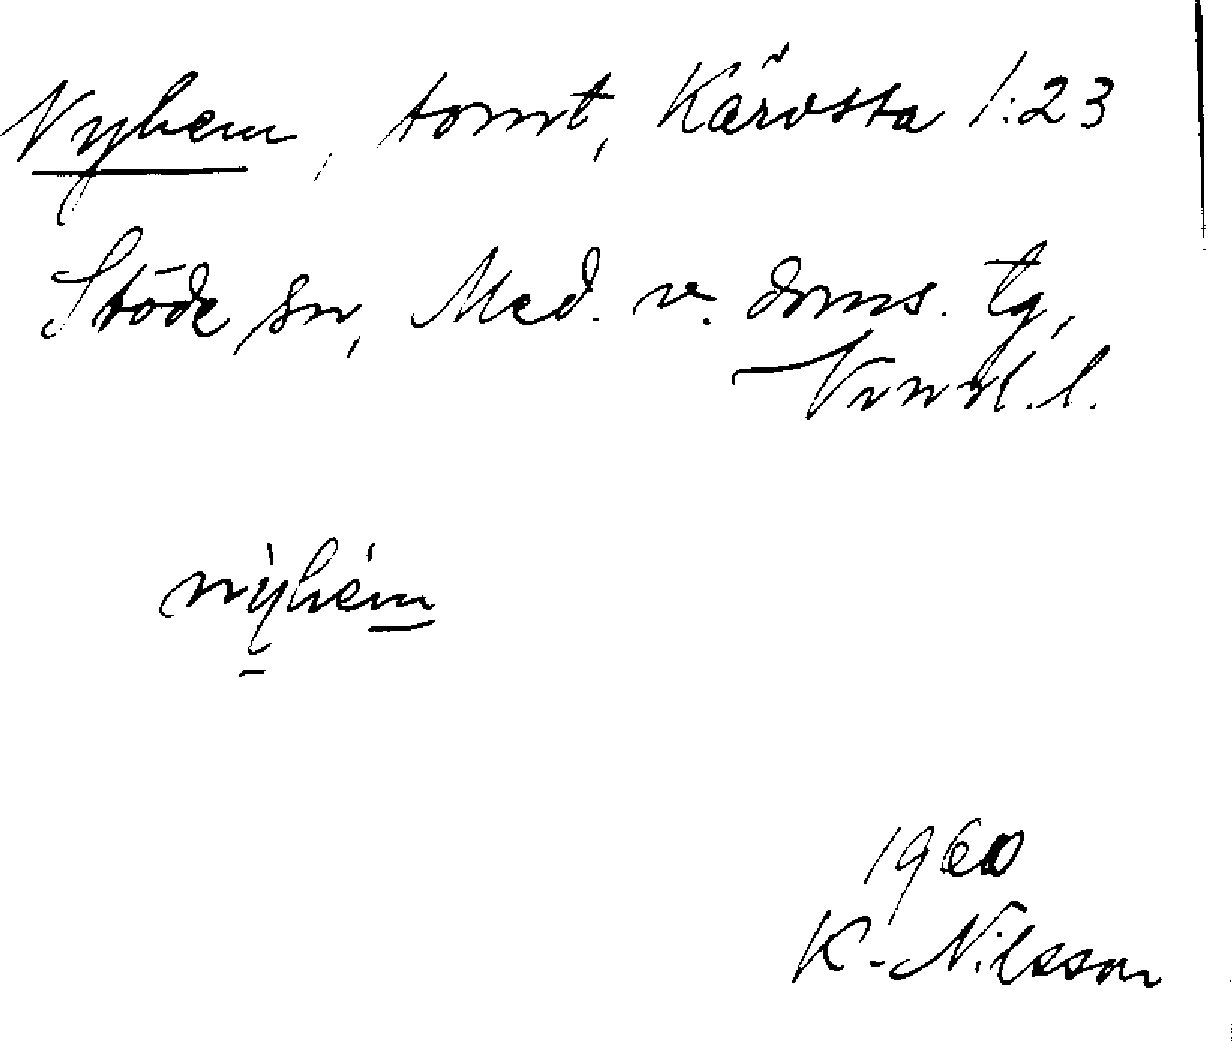 Nyhem, tomt, Kärvsta 1:23
Stöde sn, Med. v. doms. tg,
Vrnl. l.
nỳhém
1960
K. Nilsson